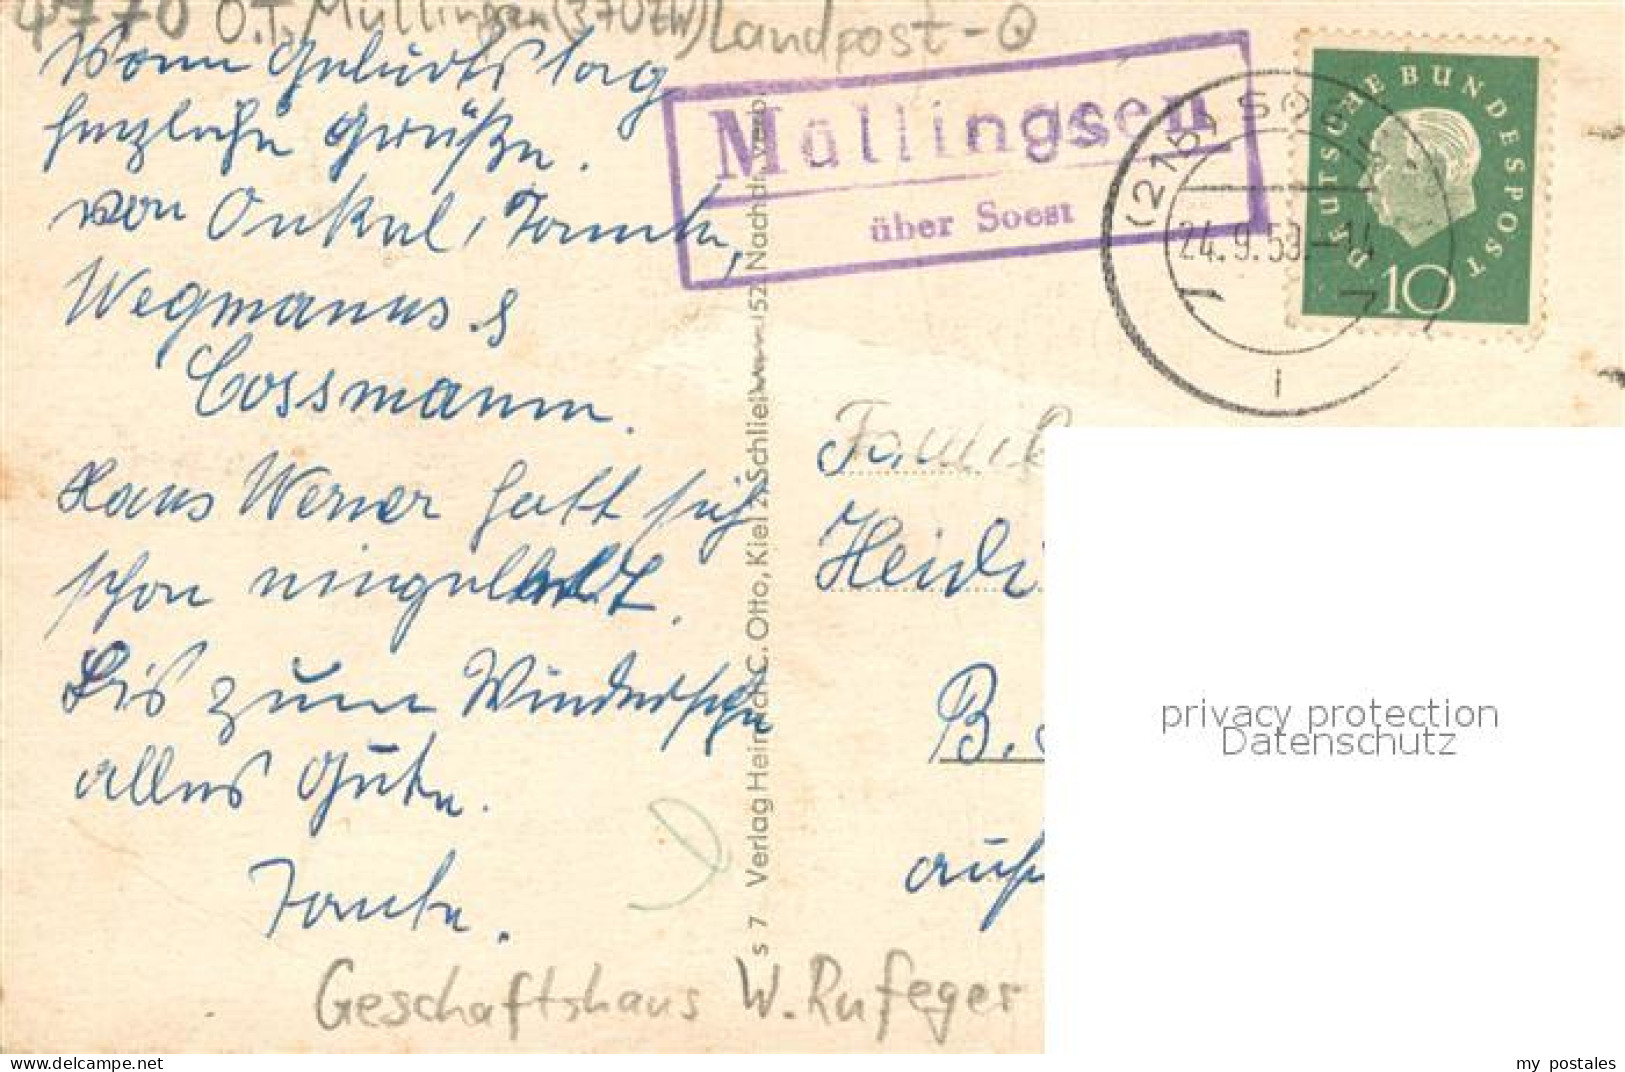 4770 O.T. Müllingsen (37UZW) Landpost-Q
Vom Geburtstag
herzliche Grüße.
von Onkel, Tante,
Wegmanns &
Cossmann.
Hans Werner hatt sich
schon eingelebt.
Bis zum Wiedersehn
alles Gute.
Tante.
Geschäftshaus W. Rufeger
s 7 Verlag Heinrich C. Otto, Kiel 2, Schließ 152 Nachdr. verb.
Müllingsen
über Soest
(21b) SOEST
24.9.59.-14
DEUTSCHE BUNDESPOST
10
Fam
Famil
Heide
B.
auf
privacy protection
Datenschutz
my postales